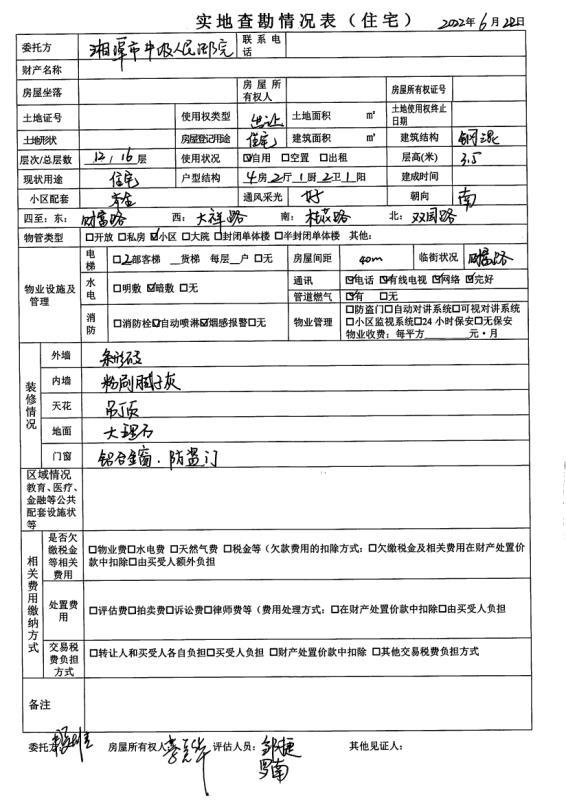 实地查勘情况表（住宅） 2022年6月22日
委托方 湘潭市中级人民法院 联系电话
财产名称
房屋坐落 房屋所有权人 房屋所有权证号
土地证号 使用权类型 出让 土地面积 ㎡ 土地使用权终止日期
土地形状 房屋登记用途 住宅 建筑面积 ㎡ 建筑结构 钢混
层次/总层数 12/16层 使用状况 ☑自用 □空置 □出租 层高(米) 3.5
现状用途 住宅 户型结构 4房2厅1厨2卫1阳 建成时间
小区配套 齐全 通风采光 好 朝向 南
四至：东： 财富路 西： 大祥路 南： 路 北： 双园路
物管类型 □开放 □私房 ☑小区 □大院 □封闭单体楼 □半封闭单体楼 其他：
物业设施及管理
电梯 □2部客梯 __货梯 每层_户 □无 房屋间距 40m 临街状况 财富路
水电 □明敷 ☑暗敷 □无 通讯 ☑电话 ☑有线电视 ☑网络 ☑完好
管道燃气 ☑有 □无
消防 □消防栓☑自动喷淋☑烟感报警□无 物业管理 □防盗门□自动对讲系统□可视对讲系统
□小区监视系统□24小时保安□无保安
物业收费：每平方____元·月
装修情况
外墙 条形砖
内墙 粉刷腻子灰
天花 吊顶
地面 大理石
门窗 铝合金窗．防盗门
区域情况
教育、医疗、
金融等公共
配套设施状
等
相关费用缴纳方式
是否欠缴税金等相关费用 □物业费□水电费 □天然气费 □税金等（欠款费用的扣除方式：□欠缴税金及相关费用在财产处置价
款中扣除□由买受人额外负担
处置费用 □评估费□拍卖费□诉讼费□律师费等（费用处理方式：□在财产处置价款中扣除□由买受人负担
交易税费负担方式 □转让人和买受人各自负担□买受人负担 □财产处置价款中扣除 □其他交易税费负担方式
备注
委托方： 房屋所有权人 评估人员： 邹捷 其他见证人：
罗南